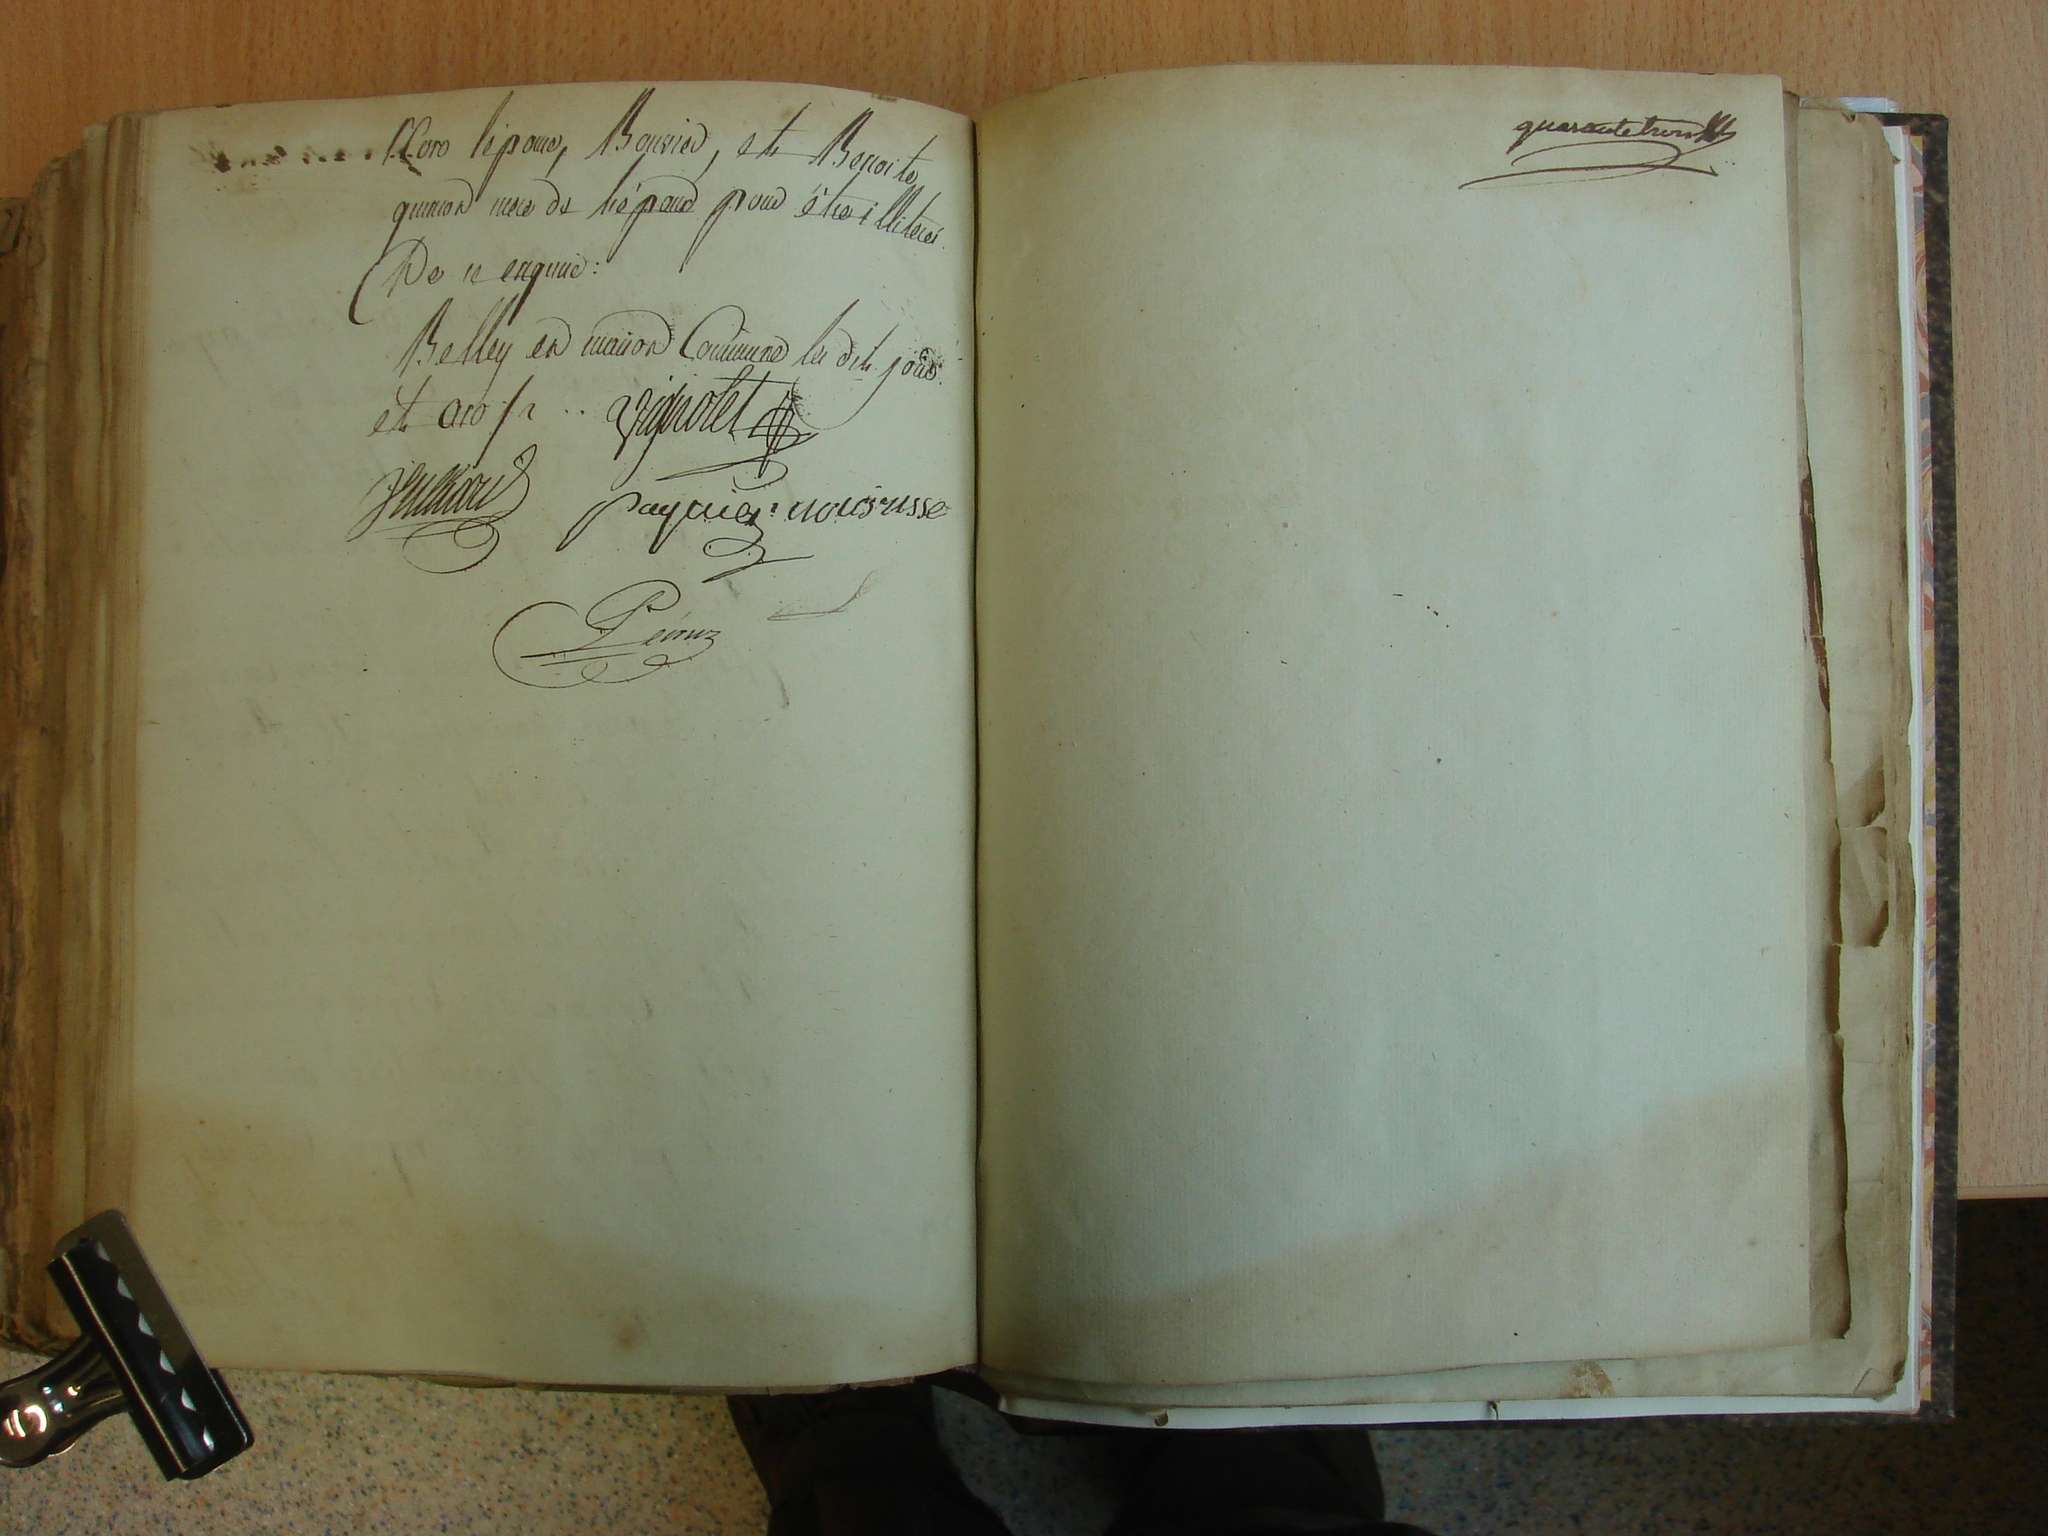 l'époux, Bouvier, et Benoite
quinson mere de l'époux pour être illiteré
De ce enquis:
Belley en maison Commune les dit jour
et an
Vignolet
paquier nourisse
Péroux
quarante trois